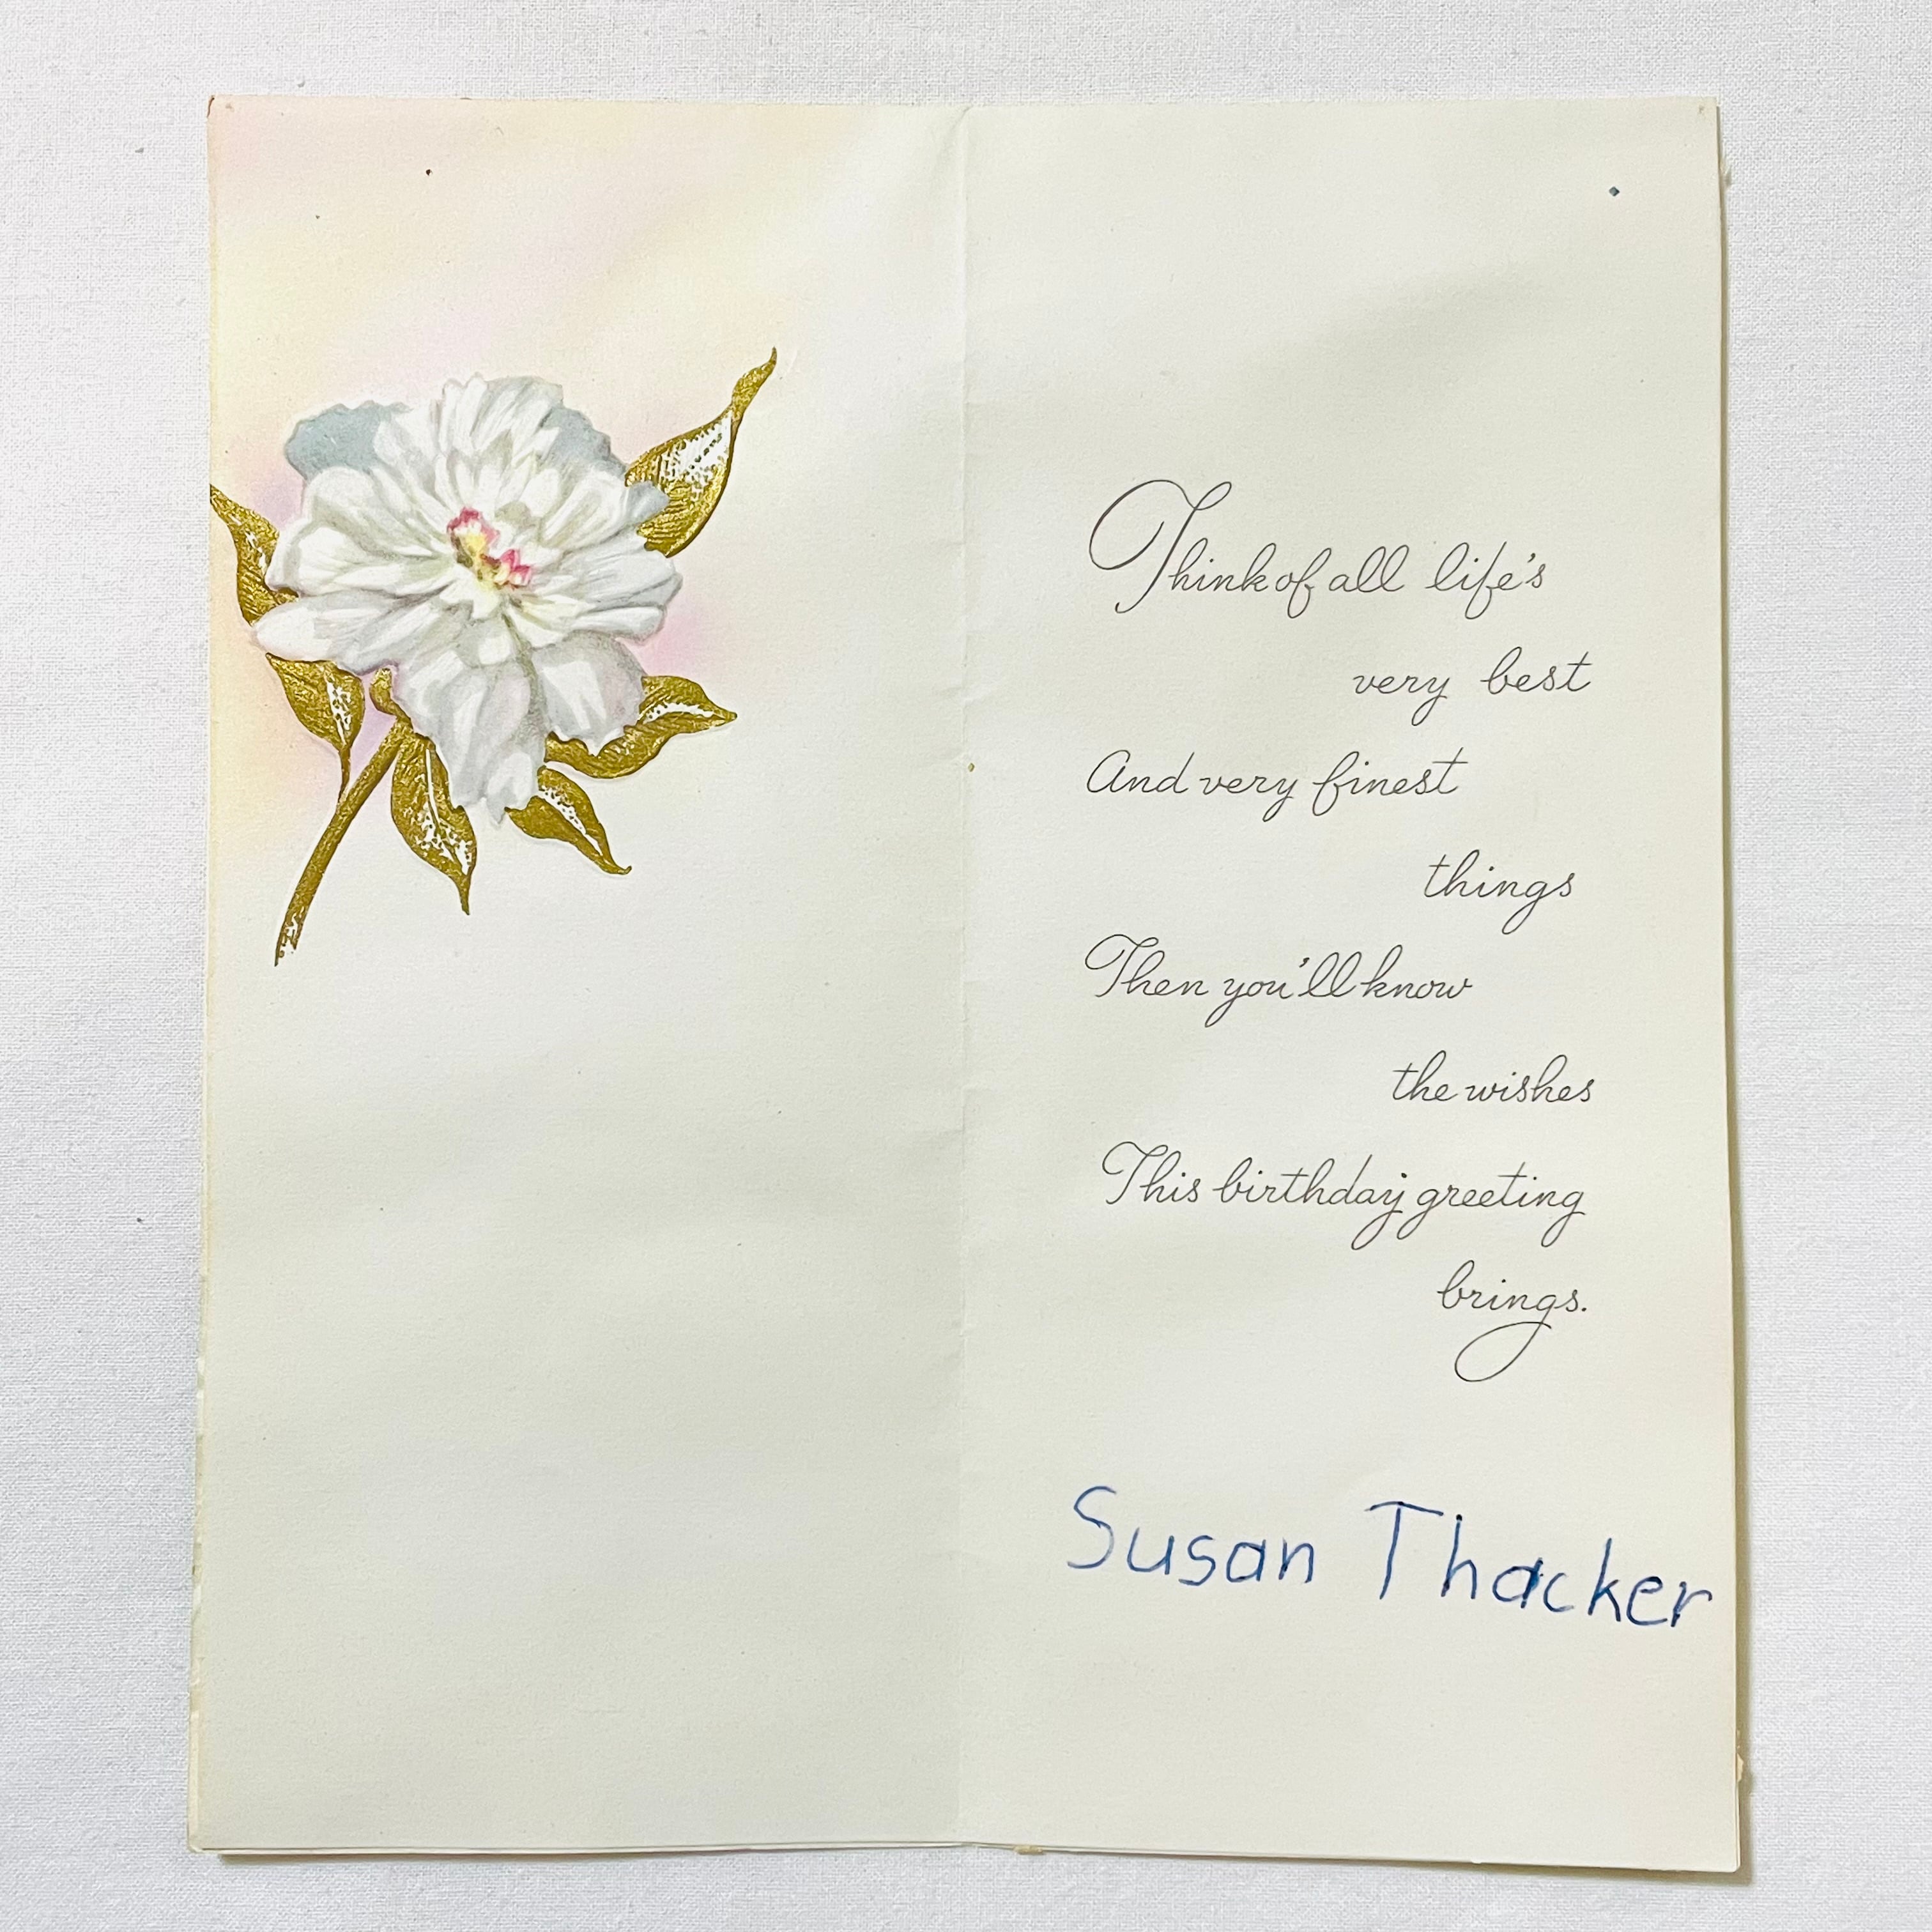 Think of all life's
very best
And very finest
things
Then you'll know
the wishes
This birthday greeting
brings.
Susan Thacker